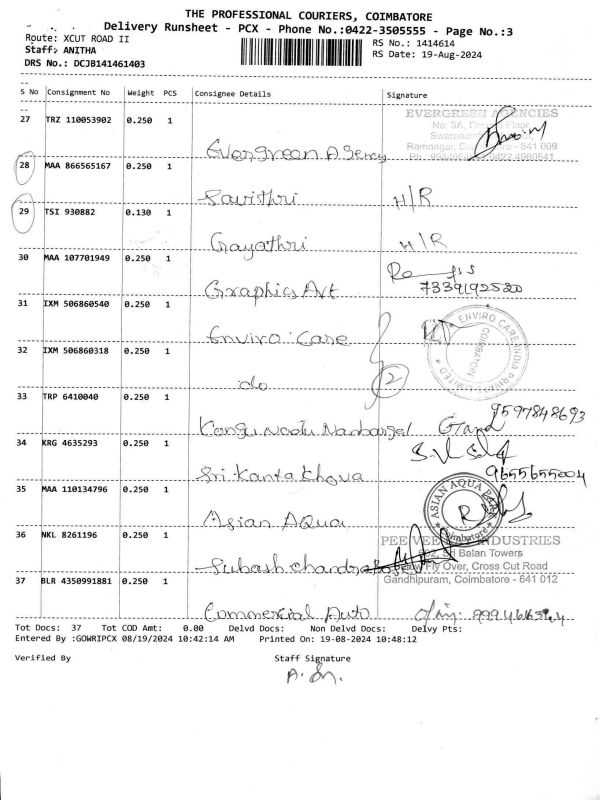 THE PROFESSIONAL COURIERS, COIMBATORE
Delivery Runsheet - PCX - Phone No.:0422-3505555 - Page No.:3
Route: XCUT ROAD II
RS No.: 1414614
Staff: ANITHA
RS Date: 19-Aug-2024
DRS No.: DCJB141461403
S No Consignment No Weight PCS Consignee Details Signature
27 TRZ 110053902 0.250 1
EVERGREEN AGENCIES
No: 3A, Floor
Ramanagar, - 641 009
Evergreen Agency
28 MAA 866565167 0.250 1
Savithri H/R
29 TSI 930882 0.130 1
Gayathri H/R
30 MAA 107701949 0.250 1
Graphics Art 7339192520
31 IXM 506860540 0.250 1
Enviro Care
ENVIRO CARE INDIA PRIVATE LIMITED
COIMBATORE
32 IXM 506860318 0.250 1
do 2
33 TRP 6410040 0.250 1
Kongu Nadu 9597848693
34 KRG 4635293 0.250 1
Sri Kanta 9655655004
35 MAA 110134796 0.250 1
Asian Aqua
ASIAN AQUA
Coimbatore
36 NKL 8261196 0.250 1
PEE VEE INDUSTRIES
Balan Towers
Fly Over, Cross Cut Road
Gandhipuram, Coimbatore - 641 012
Subash chandra
37 BLR 4350991881 0.250 1
Commercial Auto
Tot Docs: 37 Tot COD Amt: 0.00 Delvd Docs: Non Delvd Docs: Delvy Pts:
Entered By :GOWRIPCX 08/19/2024 10:42:14 AM Printed On: 19-08-2024 10:48:12
Verified By Staff Signature